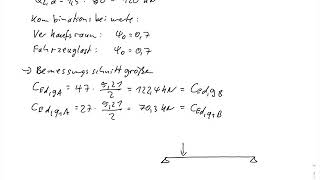 Q2,d = 1,5 · 80 = 120 kN
Kombinationsbeiwerte:
Verkaufsraum: ψ₀ = 0,7
Fahrzeuglast: ψ₀ = 0,7
→ Bemessungsschnittgröße
C_Ed,g,A = 47 · 5,21/2 = 122,4 kN = C_Ed,g,B
C_Ed,q1,A = 27 · 5,21/2 = 70,3 kN = C_Ed,q1,B